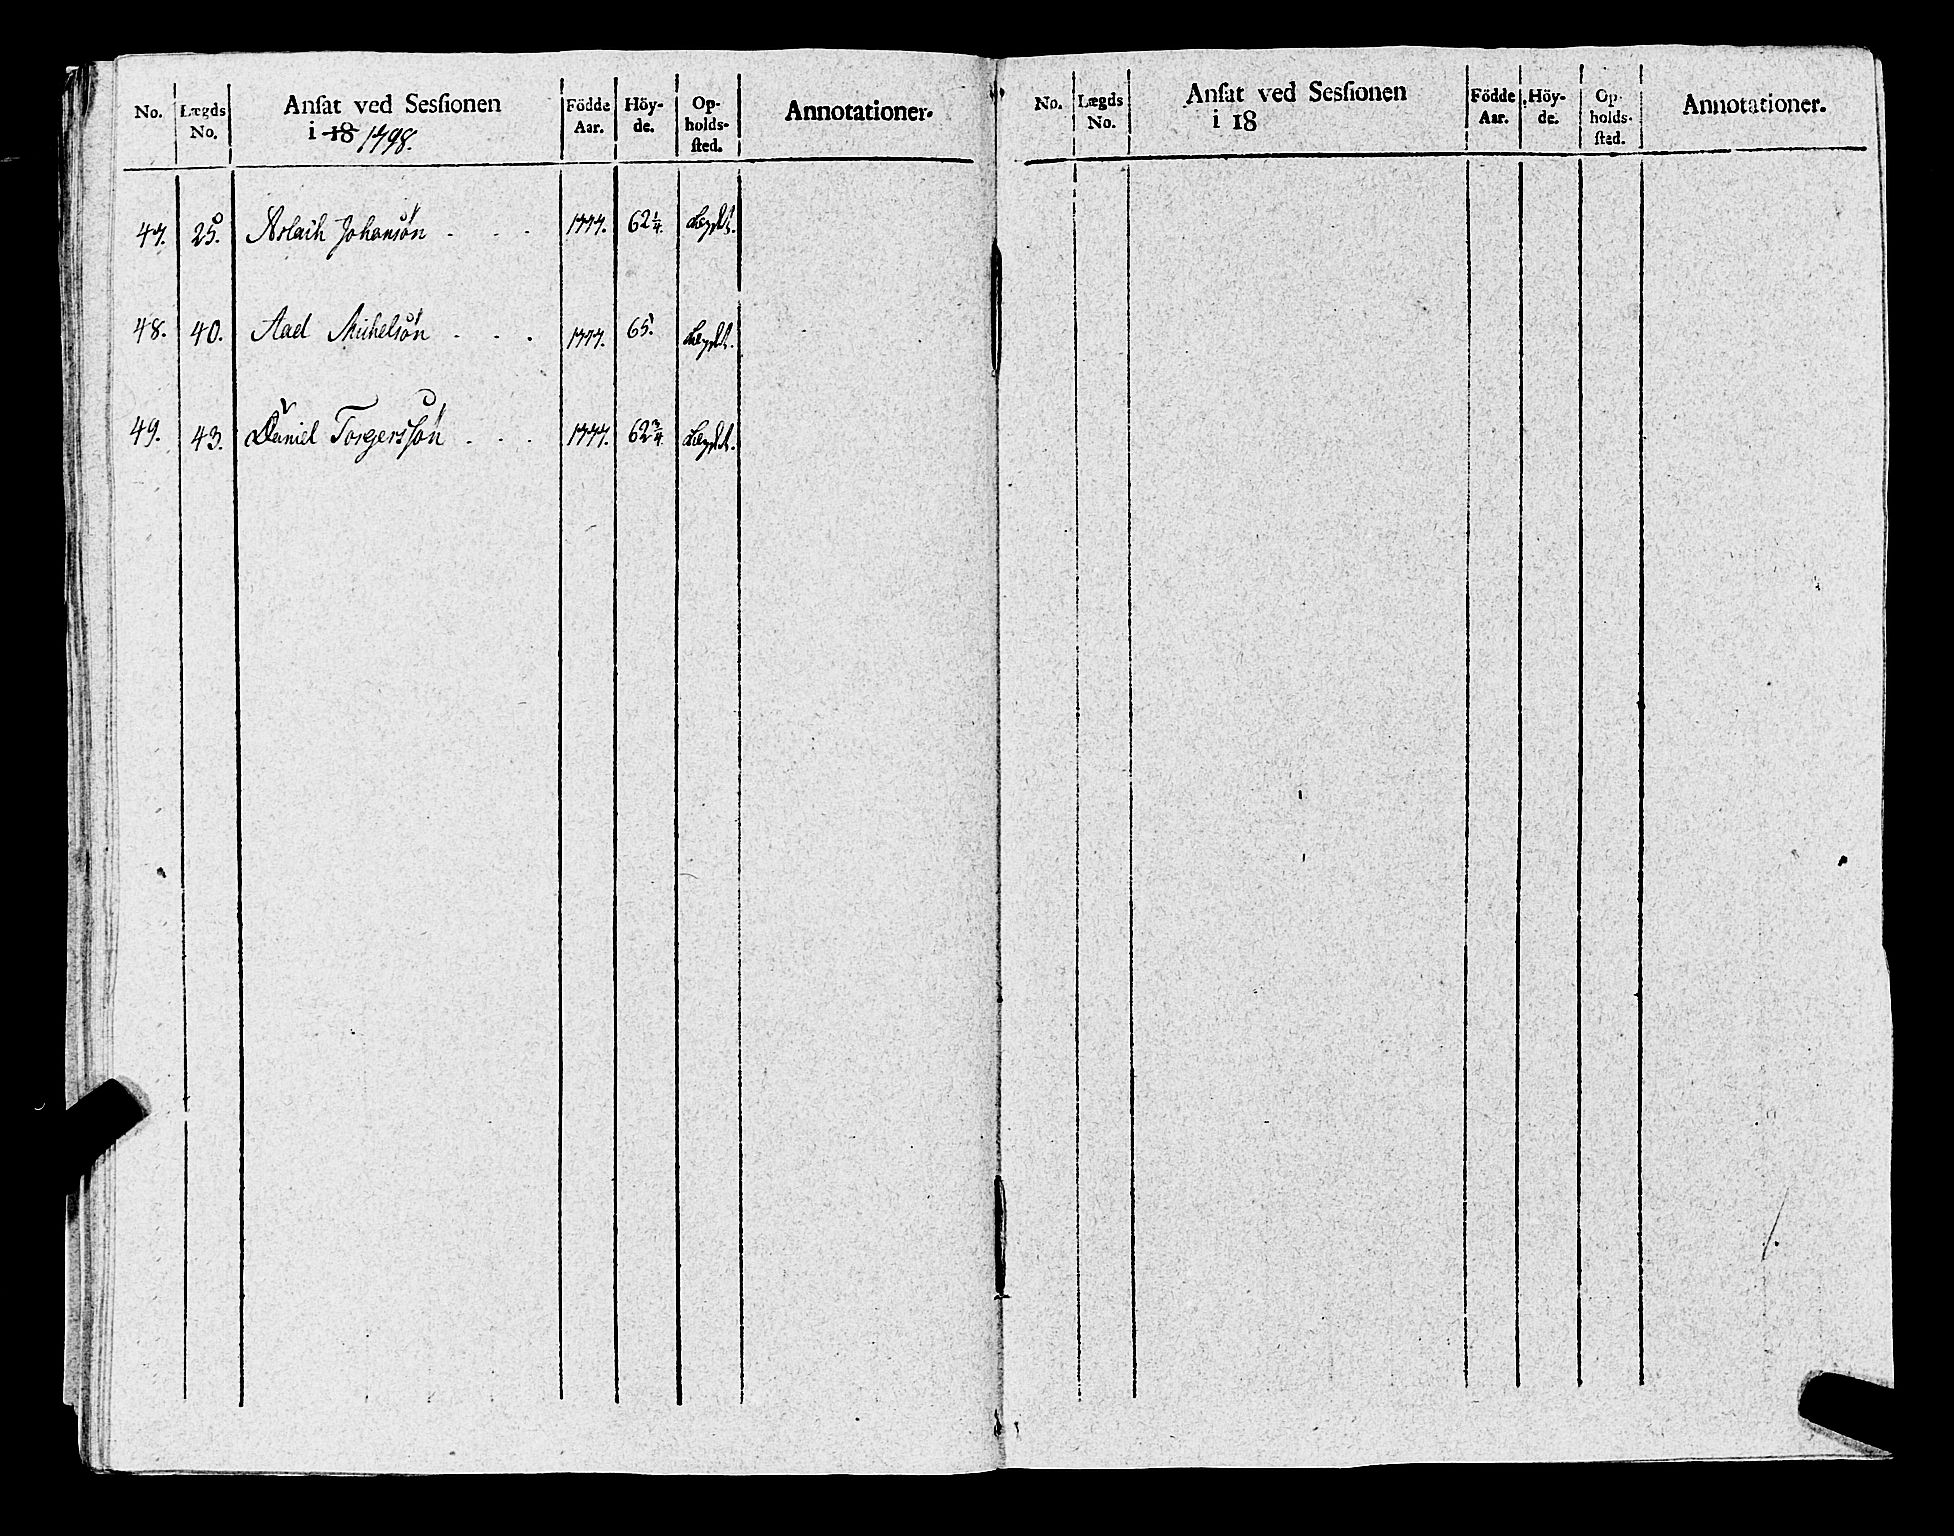 No. Lægds No. Ansat ved Sessionen i 18 1798. Födde Aar. Höyde. Op-holds-sted. Annotationer.
47. 25. Aslach Johansøn - - - 1777. 62 1/4
48. 40. Aad Michelsøn - - - 1777. 65.
49. 43. Daniel Torgerssøn - - - 1777. 62 3/4
No. Lægds No. Ansat ved Sessionen i 18 Födde Aar. Höy-de. Op-holds-sted. Annotationer.